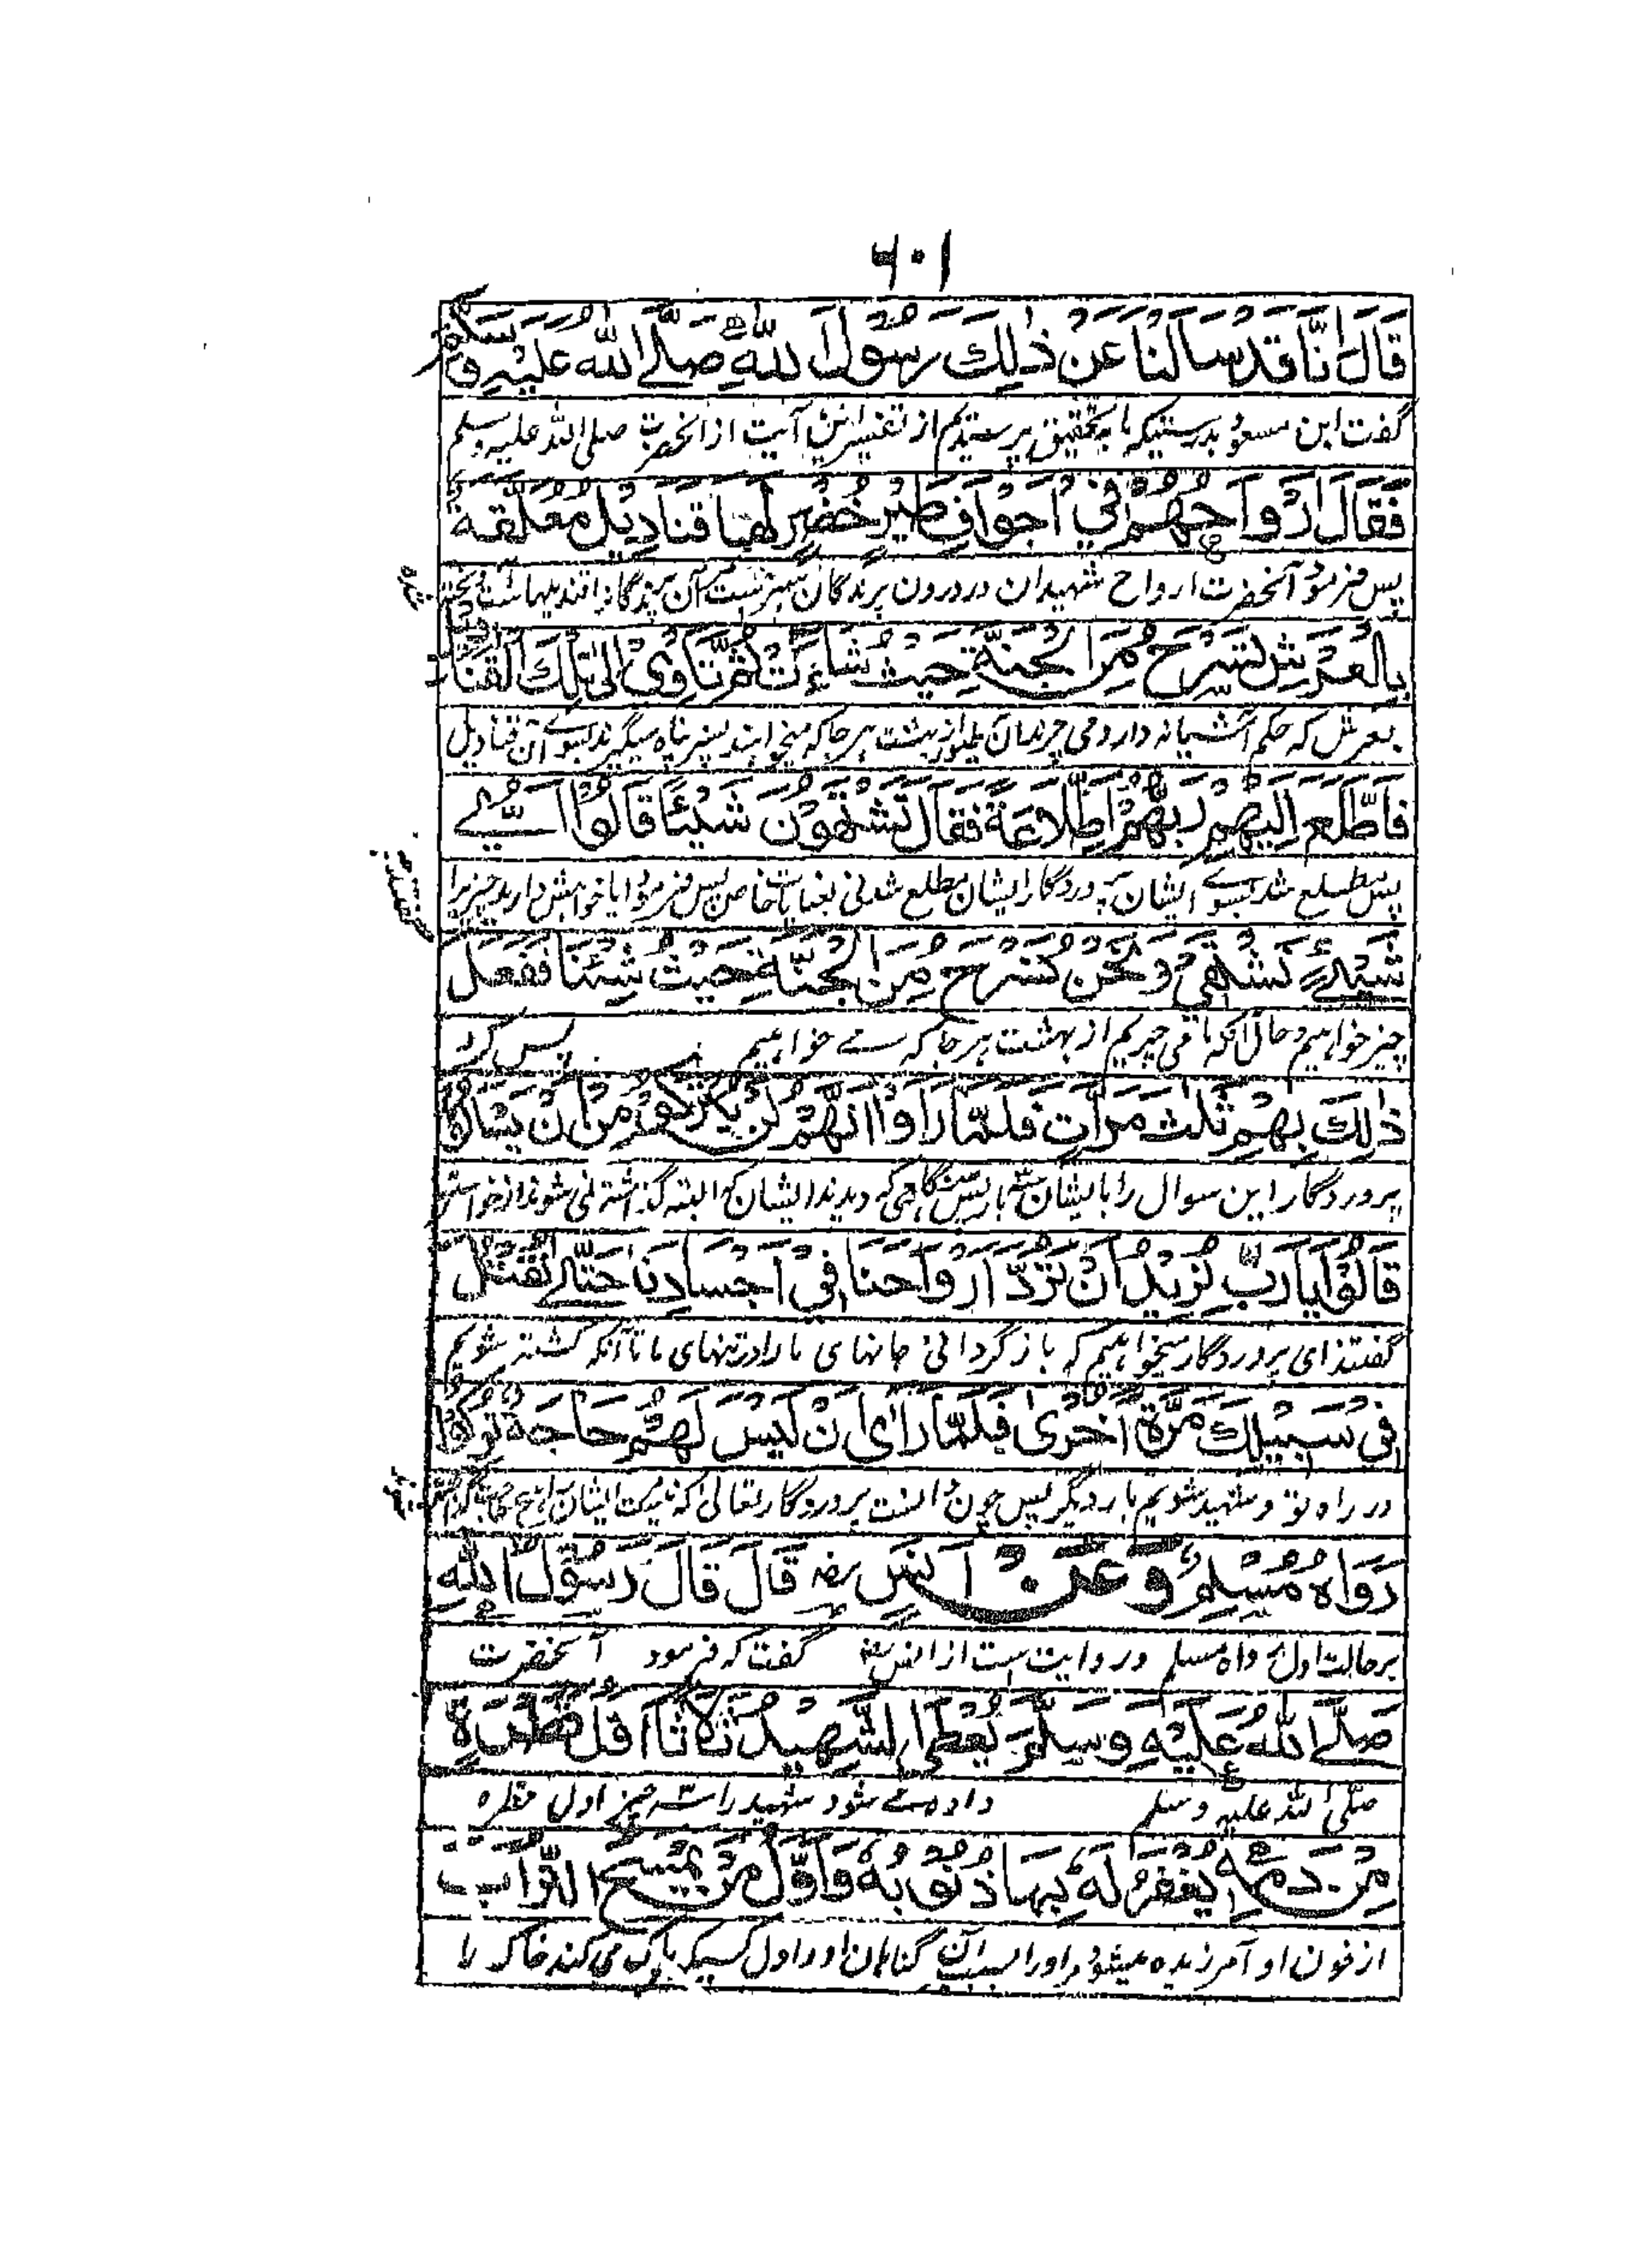 ۶۰۱
قَالَ اِنَّا قَدْ سَاَلْنَا عَنْ ذٰلِكَ رَسُوْلَ اللّٰهِ صَلَّے اللّٰهُ عَلَيْهِ وَسَلَّمَ
گفت ابن مسعود بدرستیکه ما به تحقیق پرسیدیم از تفسیر این آیت از آنحضرت صلی الله علیه وسلم
فَقَالَ اَرْوَاحُهُمْ فِيْ اَجْوَافِ طَيْرٍ خُضْرٍ لَهَا قَنَادِيْلُ مُعَلَّقَةٌ
پس فرمود آنحضرت ارواح شهیدان در درون پرندگان سبزست که آن پرندگانرا قندیلهاست آویخته شده
بِالْعَرْشِ تَسْرَحُ مِنَ الْجَنَّةِ حَيْثُ شَاءَتْ ثُمَّ تَاْوِیْ اِلٰی تِلْكَ الْقَنَادِيْلِ
بعرش که حکم آشیانه دارد و می چرند آن طیور از بهشت هر جا که میخواهند پستر پناه میگیرند بسوے آن قنادیل
فَاطَّلَعَ اِلَيْهِمْ رَبُّهُمُ اطِّلَاعَةً فَقَالَ تَشْتَهُوْنَ شَيْئًا قَالُوْا اَيَّ
پس مطلع شد بسوے ایشان پروردگار ایشان مطلع شدنی بعنایت خاص پس فرمود آیا خواهش دارید چیزیرا
شَيْءٍ نَشْتَهِيْ وَنَحْنُ نَسْرَحُ مِنَ الْجَنَّةِ حَيْثُ شِئْنَا فَفَعَلَ
چیز خواهیم و حال آنکه ما می چریم از بهشت هر جا که مے خواهیم پس کرد
ذٰلِكَ بِهِمْ ثَلٰثَ مَرَّاتٍ فَلَمَّا رَاَوْا اَنَّهُمْ لَنْ يُتْرَكُوْا مِنْ اَنْ يُسْاَلُوْا
پروردگار این سوال را بایشان سه بار پس هنگامی که دیدند ایشان که البته گذاشته نمی شوند از خواستن
قَالُوْا يَا رَبِّ نُرِيْدُ اَنْ تَرُدَّ اَرْوَاحَنَا فِيْ اَجْسَادِنَا حَتّٰے نُقْتَلَ
گفتند ای پروردگار میخواهیم که باز گردانی جانهای ما را در تنهای ما تا آنکه کشته شویم
فِيْ سَبِيْلِكَ مَرَّةً اُخْرٰی فَلَمَّا رَاٰی اَنْ لَيْسَ لَهُمْ حَاجَةٌ تُرِكُوْا
در راه تو و شهید شویم بار دیگر پس چون دانست پروردگار تعالی که نیست ایشان را هیچ حاجت
رَوَاهُ مُسْلِمٌ وَعَنْ اَنَسٍ رضه قَالَ قَالَ رَسُوْلُ اللّٰهِ
بر حالت اول رواه مسلم و روایت ست از انس رضه گفت که فرمود آنحضرت
صَلَّے اللّٰهُ عَلَيْهِ وَسَلَّمَ يُعْطَی الشَّهِيْدُ ثَلَاثًا اَوَّلُ قَطْرَةٍ
صلی الله علیه وسلم داده مے شود شهید را سه چیز اول قطره
مِنْ دَمِهٖ يُغْفَرُ لَهٗ بِهَا ذُنُوْبُهٗ وَاَوَّلُ مَنْ يَمْسَحُ التُّرَابَ
از خون او آمرزیده میشود مر او را بسبب آن گناهان او و اول کسیکه پاک می کند خاک را